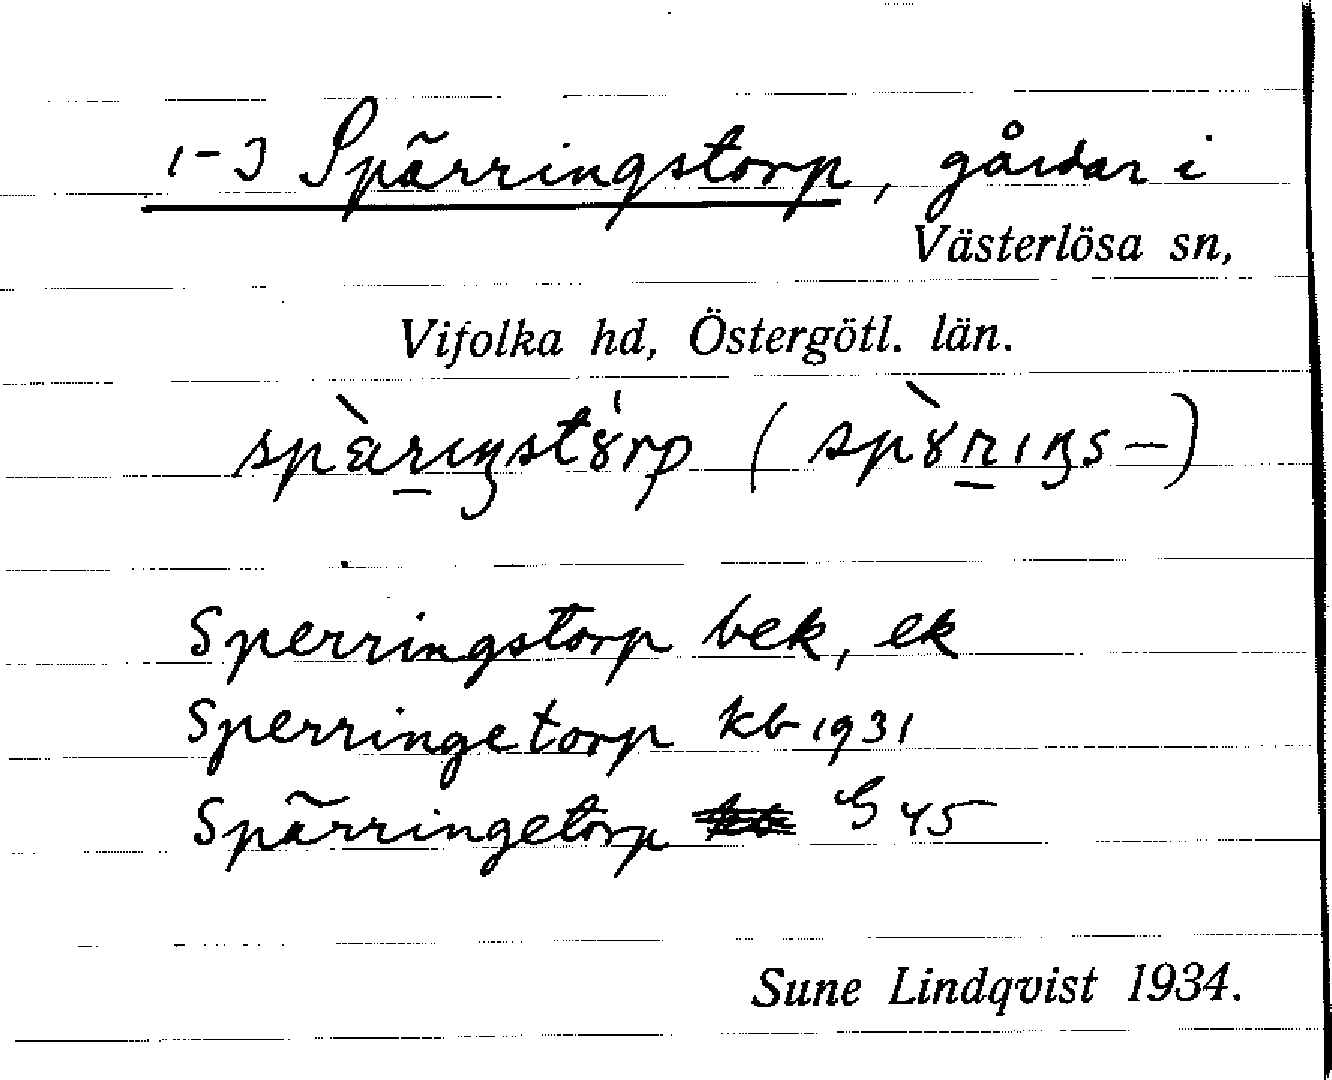 1-3 Spärringstorp, gårdar i
Västerlösa sn,
Vifolka hd, Östergötl. län.
Sperringstorp bek, ek
Sperringetorp kb 1931
Spärringetorp G 45
Sune Lindqvist 1934.